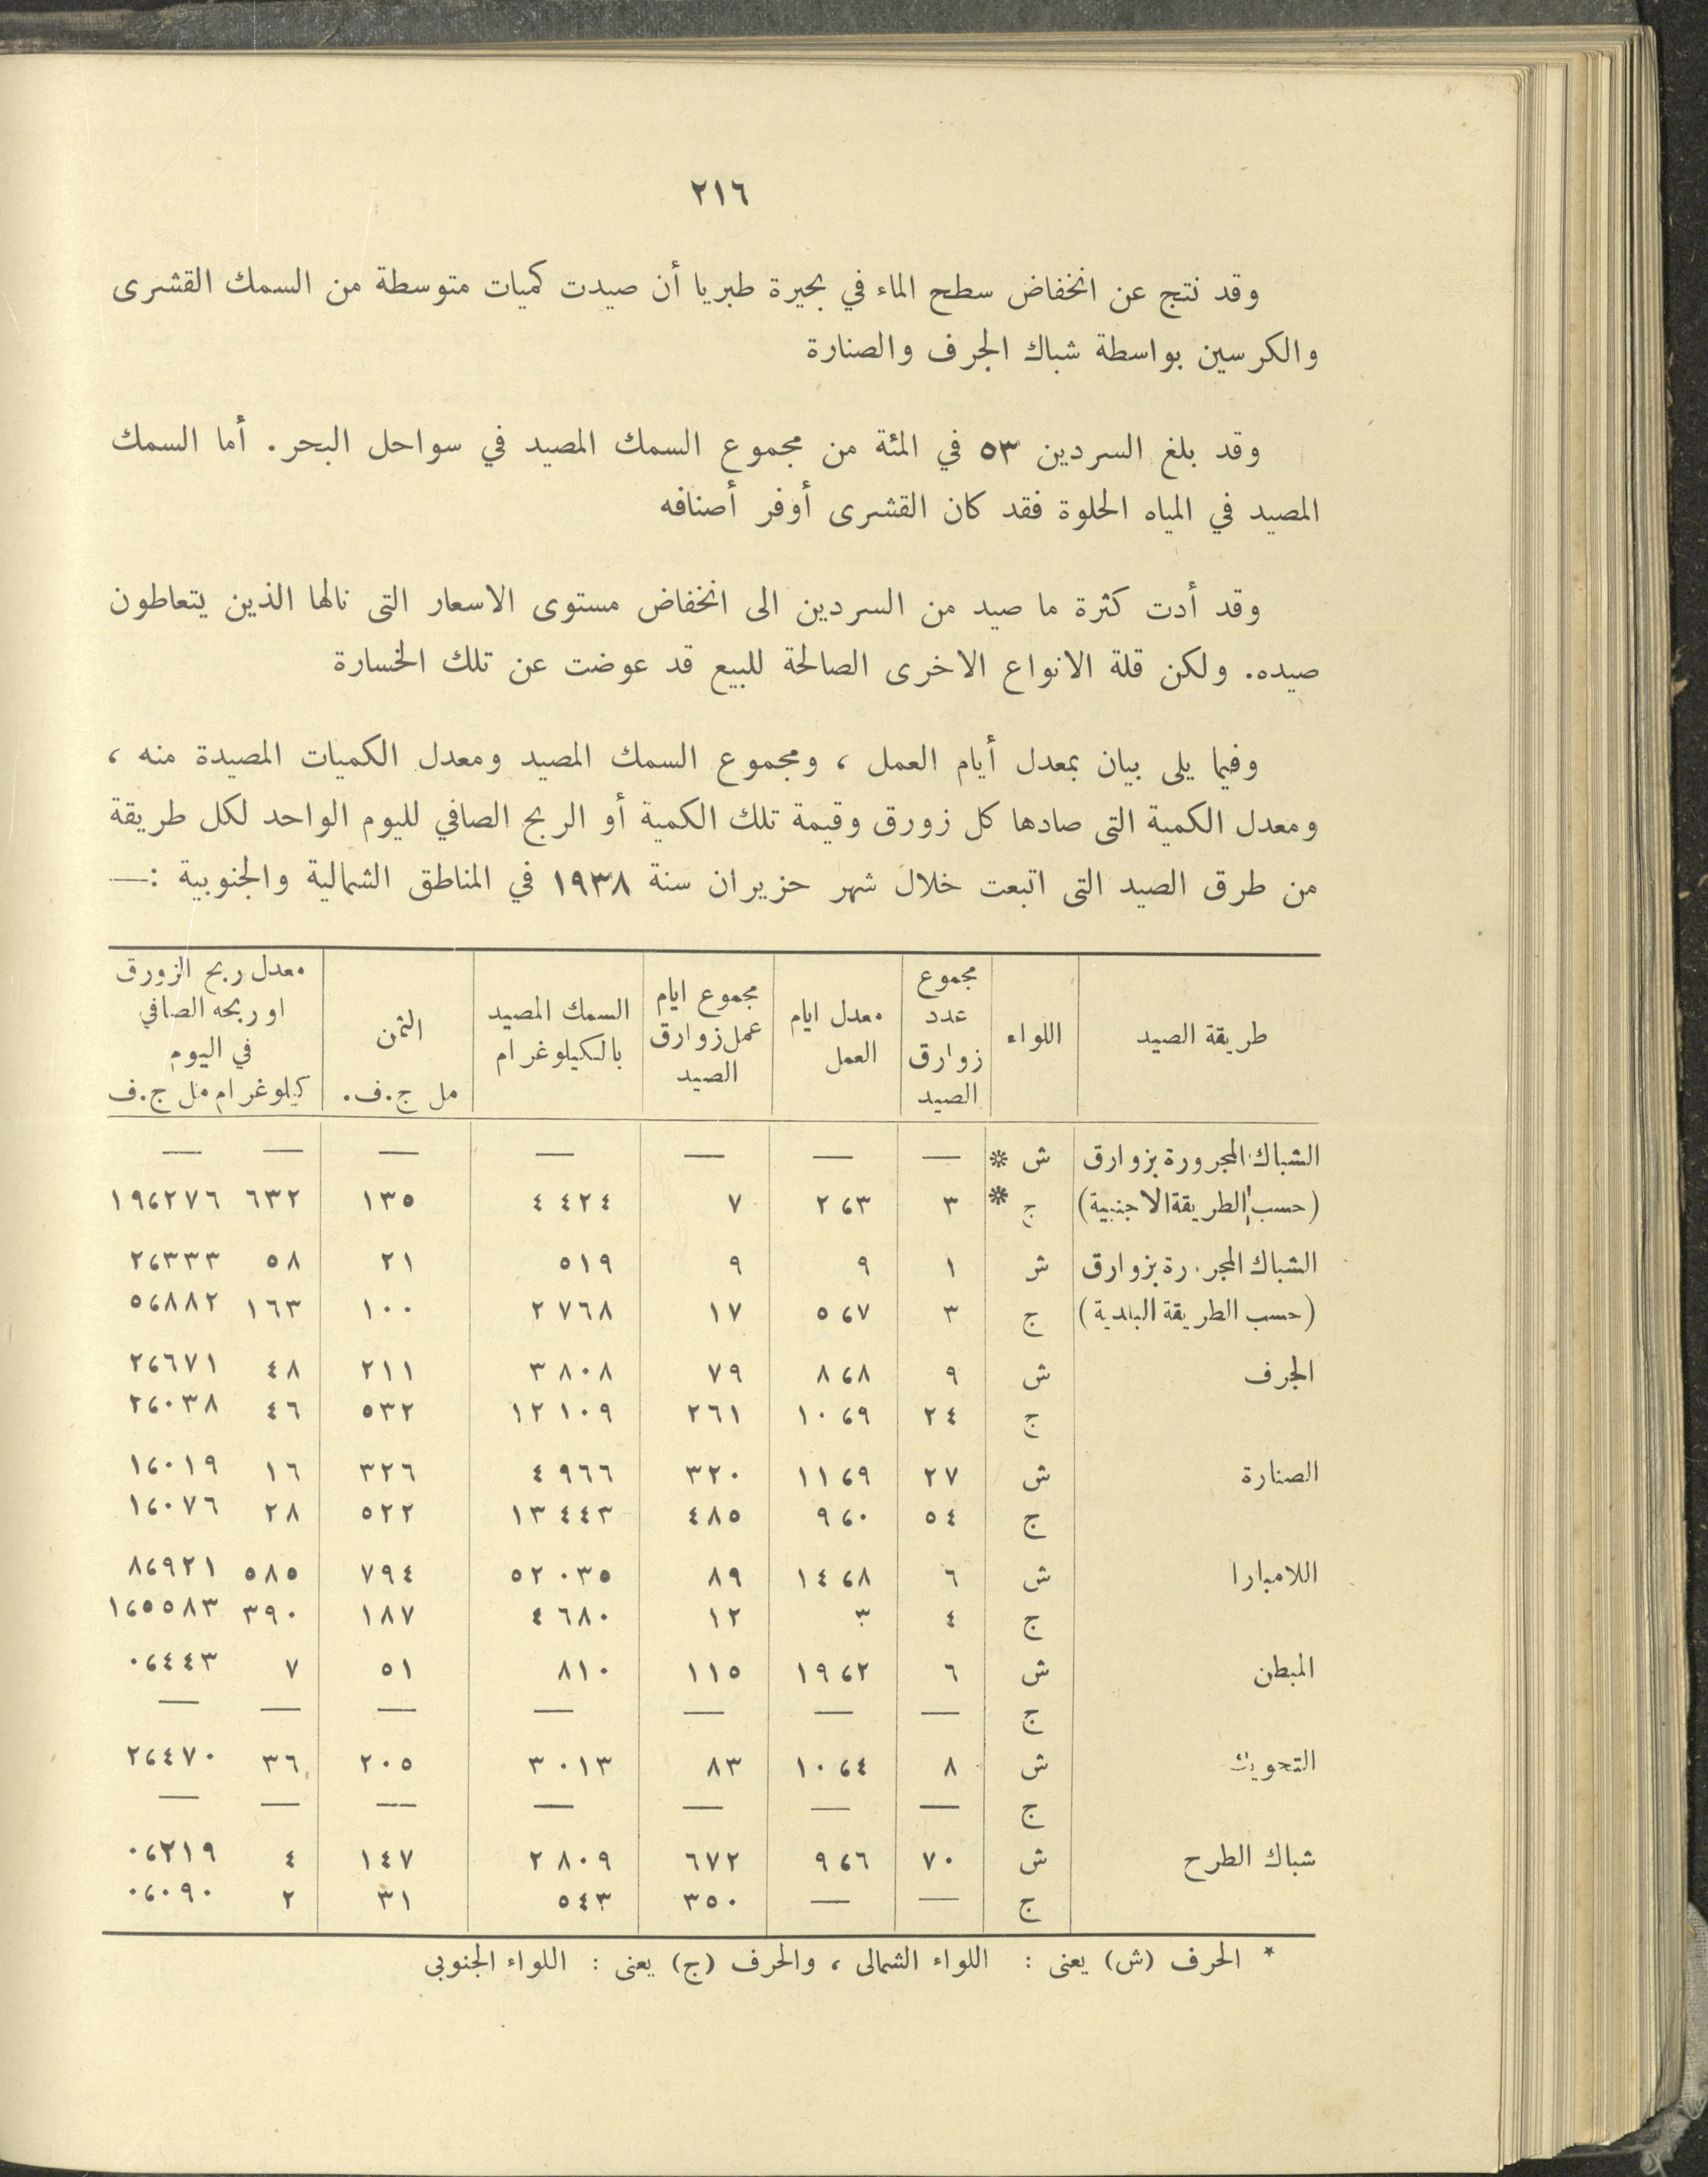 ٢١٦
وقد نتج عن انخفاض سطح الماء في بحيرة طبريا أن صيدت كميات متوسطة من السمك القشرى
والكرسين بواسطة شباك الجرف والصنارة
وقد بلغ السردين ٥٣ في المئة من مجموع السمك المصيد في سواحل البحر. أما السمك
المصيد في المياه الحلوة فقد كان القشرى أوفر أصنافه
وقد أدت كثرة ما صيد من السردين الى انخفاض مستوى الاسعار التى نالها الذين يتعاطون
صيده. ولكن قلة الانواع الاخرى الصالحة للبيع قد عوضت عن تلك الخسارة
وفيما يلى بيان بمعدل أيام العمل ، ومجموع السمك المصيد ومعدل الكميات المصيدة منه ،
ومعدل الكمية التى صادها كل زورق وقيمة تلك الكمية أو الربح الصافي لليوم الواحد لكل طريقة
من طرق الصيد التى اتبعت خلال شهر حزيران سنة ١٩٣٨ في المناطق الشمالية والجنوبية :—
طريقة الصيد | اللواء | مجموع عدد زوارق الصيد | معدل ايام العمل | مجموع ايام عمل زوارق الصيد | السمك المصيد بالكيلوغرام | الثمن مل ج.ف. | معدل ربح الزورق او ربحه الصافي في اليوم كيلوغرام مل ج.ف
الشباك المجرورة بزوارق | ش * | — | — | — | — | — | — | —
(حسب الطريقة الاجنبية) | ج * | ٣ | ٢،٣ | ٧ | ٤ ٤٢٤ | ١٣٥ | ٦٣٢ | ١٩،٢٧٦
الشباك المجرورة بزوارق | ش | ١ | ٩ | ٩ | ٥١٩ | ٢١ | ٥٨ | ٢،٣٣٣
(حسب الطريقة البلدية) | ج | ٣ | ٥،٧ | ١٧ | ٢ ٧٦٨ | ١٠٠ | ١٦٣ | ٥،٨٨٢
الجرف | ش | ٩ | ٨،٨ | ٧٩ | ٣ ٨٠٨ | ٢١١ | ٤٨ | ٢،٦٧١
ج | ٢٤ | ١٠،٩ | ٢٦١ | ١٢ ١٠٩ | ٥٣٢ | ٤٦ | ٢،٠٣٨
الصنارة | ش | ٢٧ | ١١،٩ | ٣٢٠ | ٤ ٩٦٦ | ٣٢٦ | ١٦ | ١،٠١٩
ج | ٥٤ | ٩،٠ | ٤٨٥ | ١٣ ٤٤٣ | ٥٢٢ | ٢٨ | ١،٠٧٦
اللامبارا | ش | ٦ | ١٤،٨ | ٨٩ | ٥٢ ٠٣٥ | ٧٩٤ | ٥٨٥ | ٨،٩٢١
ج | ٤ | ٣ | ١٢ | ٤ ٦٨٠ | ١٨٧ | ٣٩٠ | ١،٥٥٨٣
المبطن | ش | ٦ | ١٩،٢ | ١١٥ | ٨١٠ | ٥١ | ٧ | ٠،٤٤٣
ج | — | — | — | — | — | — | —
ش | ٨ | ١٠،٤ | ٨٣ | ٣ ٠١٣ | ٢٠٥ | ٣٦ | ٢،٤٧٠
ج | — | — | — | — | — | — | —
شباك الطرح | ش | ٧٠ | ٩،٦ | ٦٧٢ | ٢ ٨٠٩ | ١٤٧ | ٤ | ٠،٢١٩
ج | — | — | ٣٥٠ | ٥٤٣ | ٣١ | ٢ | ٠،٠٩٠
* الحرف (ش) يعنى : اللواء الشمالى ، والحرف (ج) يعنى : اللواء الجنوبى